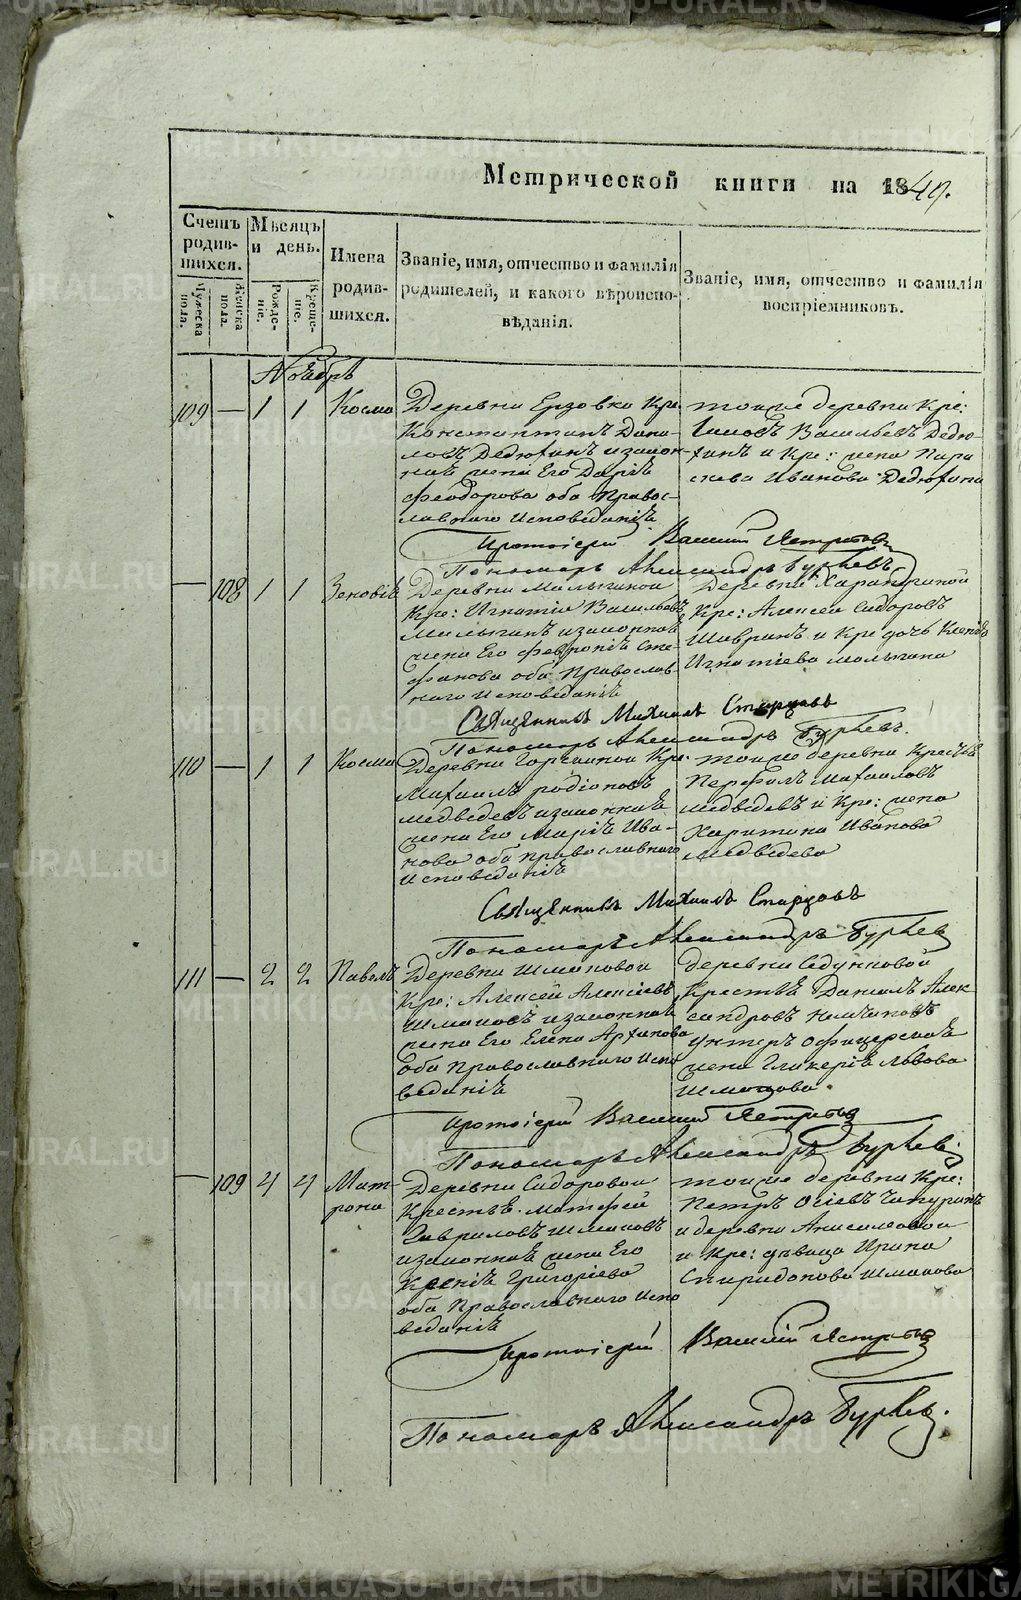 METRIKI.GASO-URAL.RU
Метрической книги на 1849.
Счетъ родив-шихся.
Мужеска пола.
Женска пола.
Мѣсяцъ и день.
Рожде-ніе.
Креще-ніе.
Имена родив-шихся.
Званіе, имя, отчество и фамилія
родителей, и какого вѣроиспо-
вѣданія.
Званіе, имя, отчество и фамилія
воспріемниковъ.
Ноябрь
109 — 1 1 Косма
Деревни Ерзовки Кре:
Константинъ Дани-
ловъ Дедюхинъ и закон-
ная жена Его Дарія
Феодорова оба Правос-
лавнаго Исповѣданія
тойже деревни Кре:
Васильевъ Дедю-
хинъ и Кре: жена Пара
скева Иванова Дедюхина
Протоіерей Василий Ястребовъ
Пономарь Александръ Бурьевъ
— 108 1 1 Зеновія
Деревни Мальгиной
Кре: Игнатій Васильевъ
Мальгинъ и законная
жена Его Февронія Сте-
фанова оба Православ-
наго Исповѣданія
Деревни
Кре: Алексей Сидоровъ
Шавринъ и Кре дочь Ксенія
Игнатіева Мальгина
Священникъ Михаилъ Старцовъ
Пономарь Александръ Бурьевъ.
110 — 1 1 Косма
Деревни Горскиной Кре:
Михаилъ Родіоновъ
Медведевъ и законная
жена Его Марія Ива-
нова оба православнаго
Исповеданія
тойже деревни Крестья
Перфилъ Михаиловъ
Медведевъ и Кре: жена
Харитина Иванова
Медведева
Священникъ Михаилъ Старцовъ
Пономарь Александръ Бурьев
111 — 2 2 Павелъ
Деревни Шмаковой
Кре: Алексей Алексіевъ
Шмаковъ и законная
жена Его Елена Архипова
оба Православнаго Испо
веданія
деревни Седунковой
Крестья Даніилъ Алек-
сандровъ
Унтеръ офицерская
жена Гликерія Львова
Шмакова.
Протоіерей Василий Ястребовъ
Пономарь Александръ Бурьев.
— 109 4 4 Мат-
рона
Деревни Сидоровой
Крестья. Матфей
Гавриловъ Шмаковъ
и законная жена Его
Ксенія Григоріева
оба Православнаго Испо
веданія
тойже деревни Кре:
Петръ Осіевъ Чапуринъ
и деревни Анисимовой
и Кре: дѣвица Ирина
Спиридонова Шмакова
Протоіерей Василій Ястребовъ
Пономарь Александръ Бурьев.